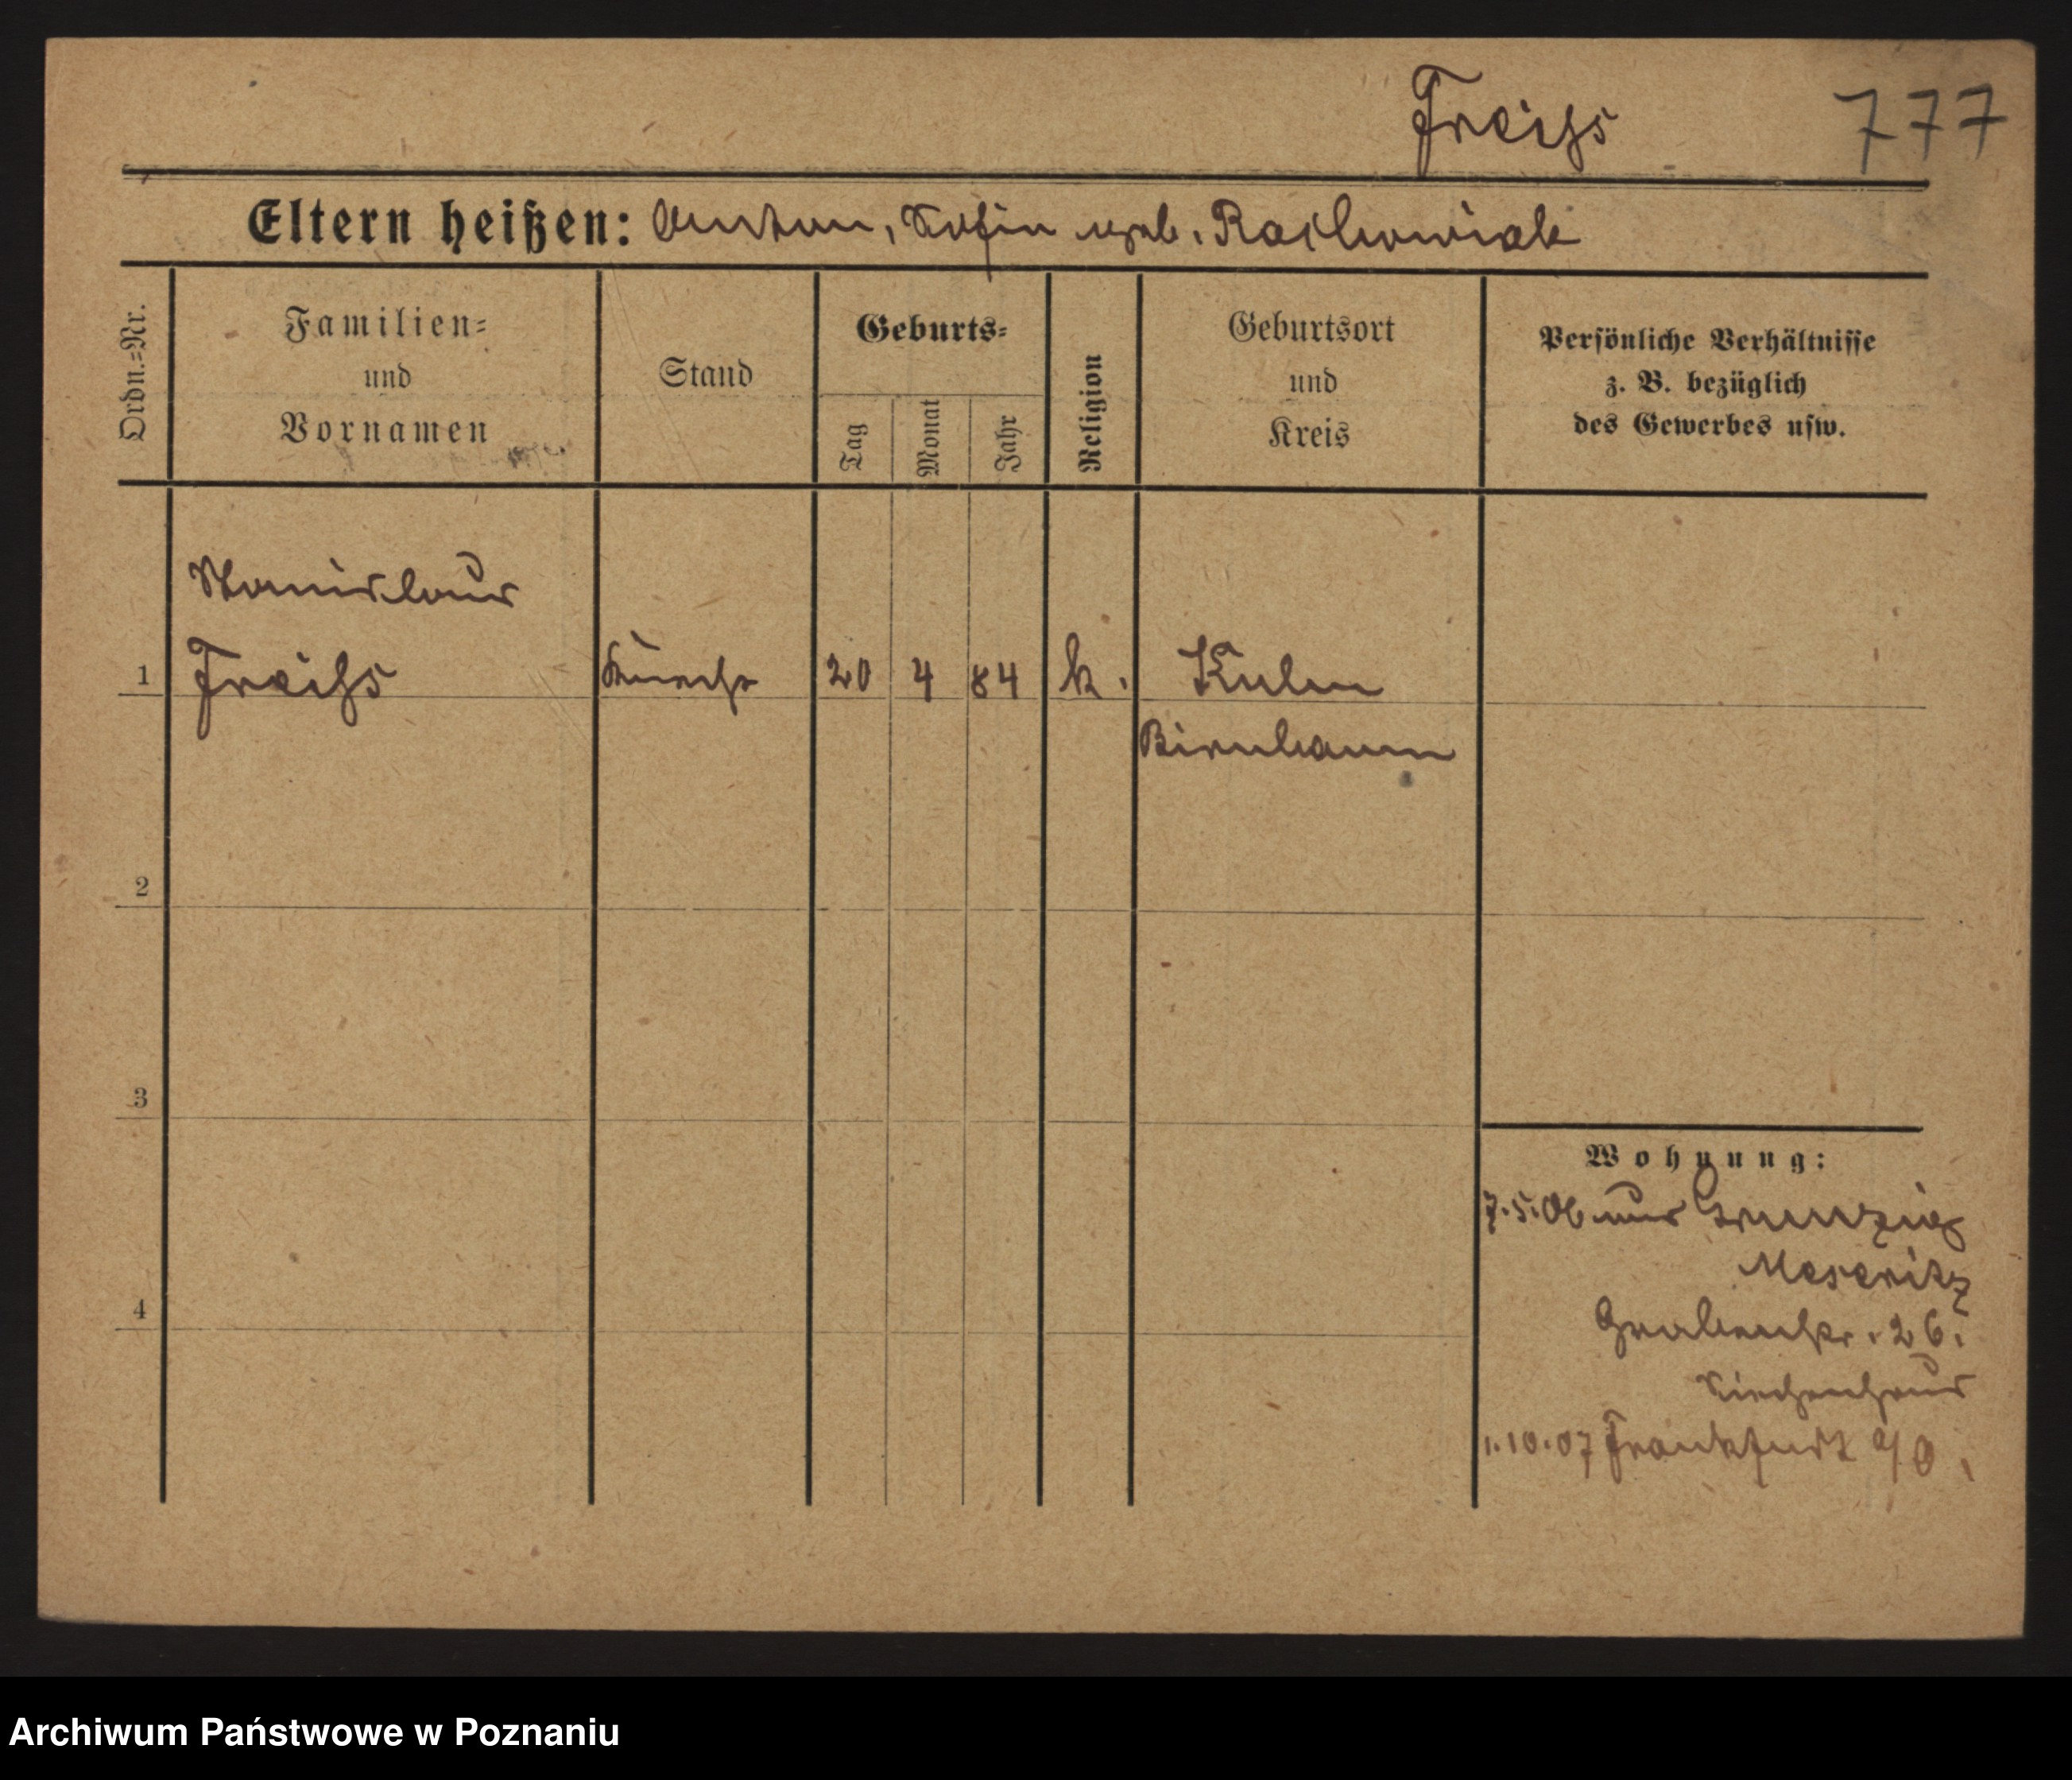 Freihs 777
Eltern heißen: Anton, Sofia geb. Rachowiak
Ordn.=Nr.
Familien=
und
Vornamen
Stand
Geburts=
Tag
Monat
Jahr
Religion
Geburtsort
und
Kreis
Persönliche Verhältnisse
z. B. bezüglich
des Gewerbes usw.
Stanislaus
1 Freihs 20 4 84 k. Kulm
Birnbaum
2
3
4
Wohnung:
7.5.06 aus
Meseritz
Grabenstr. 26.
1.10.07 Frankfurt a/O.
Archiwum Państwowe w Poznaniu